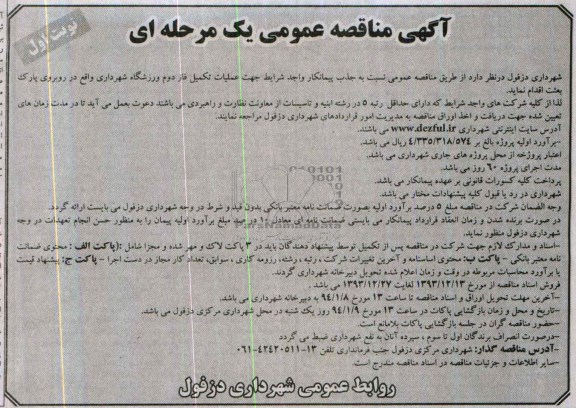 آگهی مناقصه عمومی یک مرحله ای
نوبت اول
شهرداری دزفول درنظر دارد از طریق مناقصه عمومی نسبت به جذب پیمانکار واجد شرایط جهت عملیات تکمیل فاز دوم ورزشگاه شهرداری واقع در روبروی پارک
بعثت اقدام نماید.
لذا از کلیه شرکت های واجد شرایط که دارای حداقل رتبه ۵ در رشته ابنیه و تاسیسات از معاونت نظارت و راهبردی می باشند دعوت بعمل می آید تا در مدت زمان های
تعیین شده جهت دریافت و اخذ اوراق مناقصه به مدیریت امور قراردادهای شهرداری دزفول مراجعه نمایند.
آدرس سایت اینترنتی شهرداری www.dezful.ir می باشند.
-برآورد اولیه پروژه بالغ بر ۴/۳۳۵/۳۱۸/۵۷۴ ریال می باشد.
اعتبار پروژخه از محل پروژه های جاری شهرداری می باشد.
مدت اجرای پروژه ۶۰ روز می باشد.
پرداخت کلیه کسورات قانونی بر عهده پیمانکار می باشد.
شهرداری در رد یا قبول کلیه پیشنهادات مختار می باشد.
وجه الضمان شرکت در مناقصه مبلغ ۵ درصد برآورد اولیه بصورت ضمانت نامه معتبر بانکی بدون قید و شرط در وجه شهرداری دزفول می بایست ارائه گردد.
در صورت برنده شدن و زمان انعقاد قرارداد پیمانکار می بایستی ضمانت نامه ای معادل ۱۰ درصد مبلغ برآورد اولیه پیمان را به منظور حسن انجام تعهدات در وجه
شهرداری دزفول منظور نماید.
-اسناد و مدارک لازم جهت شرکت در مناقصه پس از تکمیل توسط پیشنهاد دهندگان باید در ۳ پاکت لاک و مهر شده و مجزا شامل :(پاکت الف : محتوی ضمانت
نامه معتبر بانکی - پاکت ب: محتوی اساسنامه و آخرین تغییرات شرکت ، رتبه ، رشته، رزومه کاری ، سوابق، تعداد کار مجاز در دست اجرا - پاکت ج: پیشنهاد قیمت
یا برآورد محاسبات مربوطه در وقت و زمان اعلام شده تحویل دبیرخانه شهرداری گردند.
فروش اسناد مناقصه از مورخ ۱۳۹۳/۱۲/۱۳ لغایت ۱۳۹۳/۱۲/۲۷ می باشد .
-آخرین مهلت تحویل اوراق و اسناد مناقصه تا ساعت ۱۳ مورخ ۹۴/۱/۸ به دبیرخانه شهرداری می باشد.
-تاریخ و محل و زمان بازگشایی پاکات در ساعت ۱۳ مورخ ۹۴/۱/۹ روز یک شنبه در محل شهرداری مرکزی دزفول می باشد.
-حضور مناقصه گران در جلسه بازگشایی پاکات بلامانع است.
-درصورت انصراف برندگان اول تا سوم ، سپرده آنان به نفع شهرداری ضبط می گردد
-آدرس مناقصه گذار: شهرداری مرکزی دزفول جنب فرمانداری تلفن ۱۳-۴۲۴۲۰۵۱۱-۰۶۱
-سایر اطلاعات و جزئیات مناقصه در اسناد مناقصه مندرج است.
روابط عمومی شهرداری دزفول